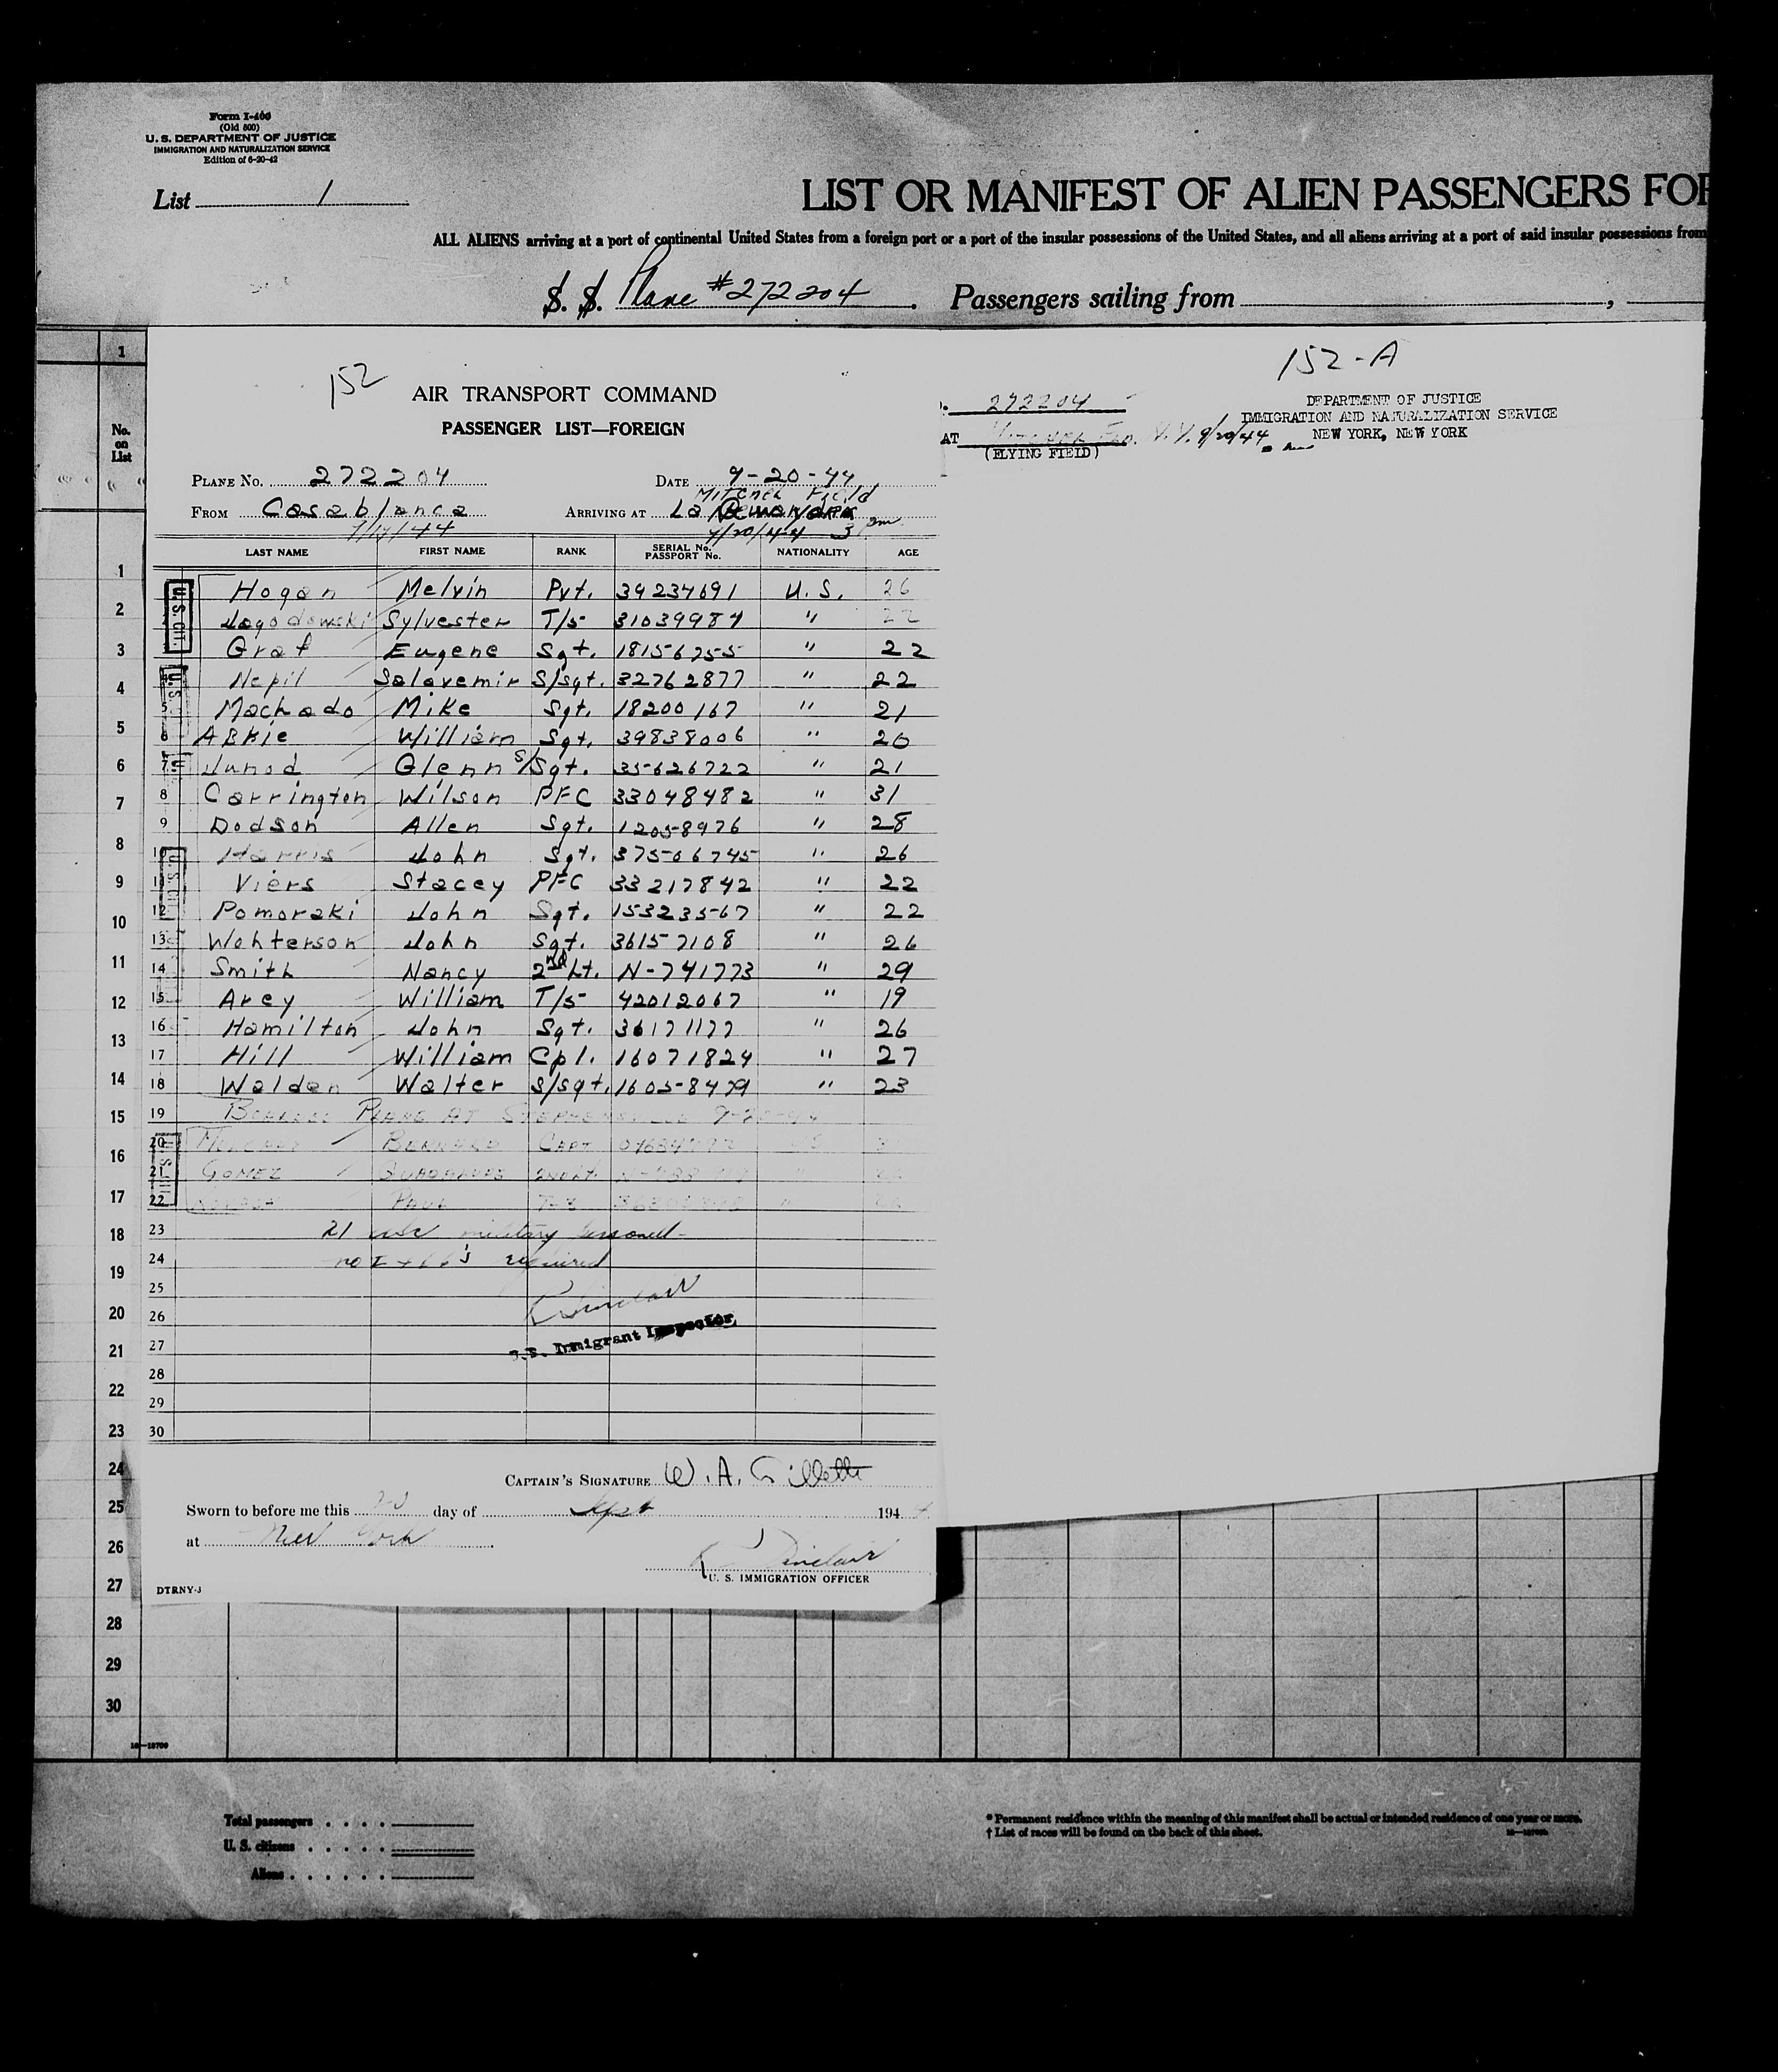 Form I-466
(Old 500)
U. S. DEPARTMENT OF JUSTICE
IMMIGRATION AND NATURALIZATION SERVICE
Edition of 6-20-42
List 1
LIST OR MANIFEST OF ALIEN PASSENGERS FOR
ALL ALIENS arriving at a port of continental United States from a foreign port or a port of the insular possessions of the United States, and all aliens arriving at a port of said insular possessions from
S. S. Plane #272204. Passengers sailing from ,
152
AIR TRANSPORT COMMAND
PASSENGER LIST—FOREIGN
PLANE NO. 272204 DATE 9-20-44
Mitchel Field
FROM Casablanca ARRIVING AT La
9/20/44 3 pm
LAST NAME FIRST NAME RANK SERIAL NO. PASSPORT NO. NATIONALITY AGE
Hogan Melvin Pvt. 39234691 U.S. 26
Jagodowski Sylvester T/5 31039984 " 22
Graf Eugene Sgt. 18156755 " 22
Nepil Salavemir S/sgt. 32762877 " 22
Machado Mike Sgt. 18200167 " 21
6 Abkie William Sgt. 39838006 " 20
7 Junod Glenn S/Sgt. 35626722 " 21
8 Carrington Wilson PFC 33048482 " 31
9 Dodson Allen Sgt. 12058976 " 28
10 Harris John Sgt. 37506745 " 26
11 Viers Stacey PFC 33217842 " 22
12 Pomorski John Sgt. 15323567 " 22
13 Wohterson John Sgt. 36157108 " 26
14 Smith Nancy 2nd Lt. N-741773 " 29
15 Arey William T/5 42012067 " 19
16 Hamilton John Sgt. 36171177 " 26
17 Hill William Cpl. 16071824 " 27
18 Walden Walter S/sgt. 16058479 " 23
19 Boarded Plane at Stephenville 9-20-44
20 Bernard Capt
21 Gomez Guadalupe 2nd Lt.
22 Paul
23 21 military personnel
24 no I 466's required
25 Sinclair
26
U.S. Immigrant Inspector
27
28
29
30
CAPTAIN'S SIGNATURE W. A. Gillette
Sworn to before me this 20 day of Sept 1944
at New York
Sinclair
U. S. IMMIGRATION OFFICER
DTRNY-3
152-A
272204
DEPARTMENT OF JUSTICE
IMMIGRATION AND NATURALIZATION SERVICE
NEW YORK, NEW YORK
AT Mitchel Fld. N.Y. 9/20/44
(FLYING FIELD)
No. on List
1
1
2
3
4
5
6
7
8
9
10
11
12
13
14
15
16
17
18
19
20
21
22
23
24
25
26
27
28
29
30
16—18709
Total passengers
U. S. citizens
Aliens
* Permanent residence within the meaning of this manifest shall be actual or intended residence of one year or more.
† List of races will be found on the back of this sheet.